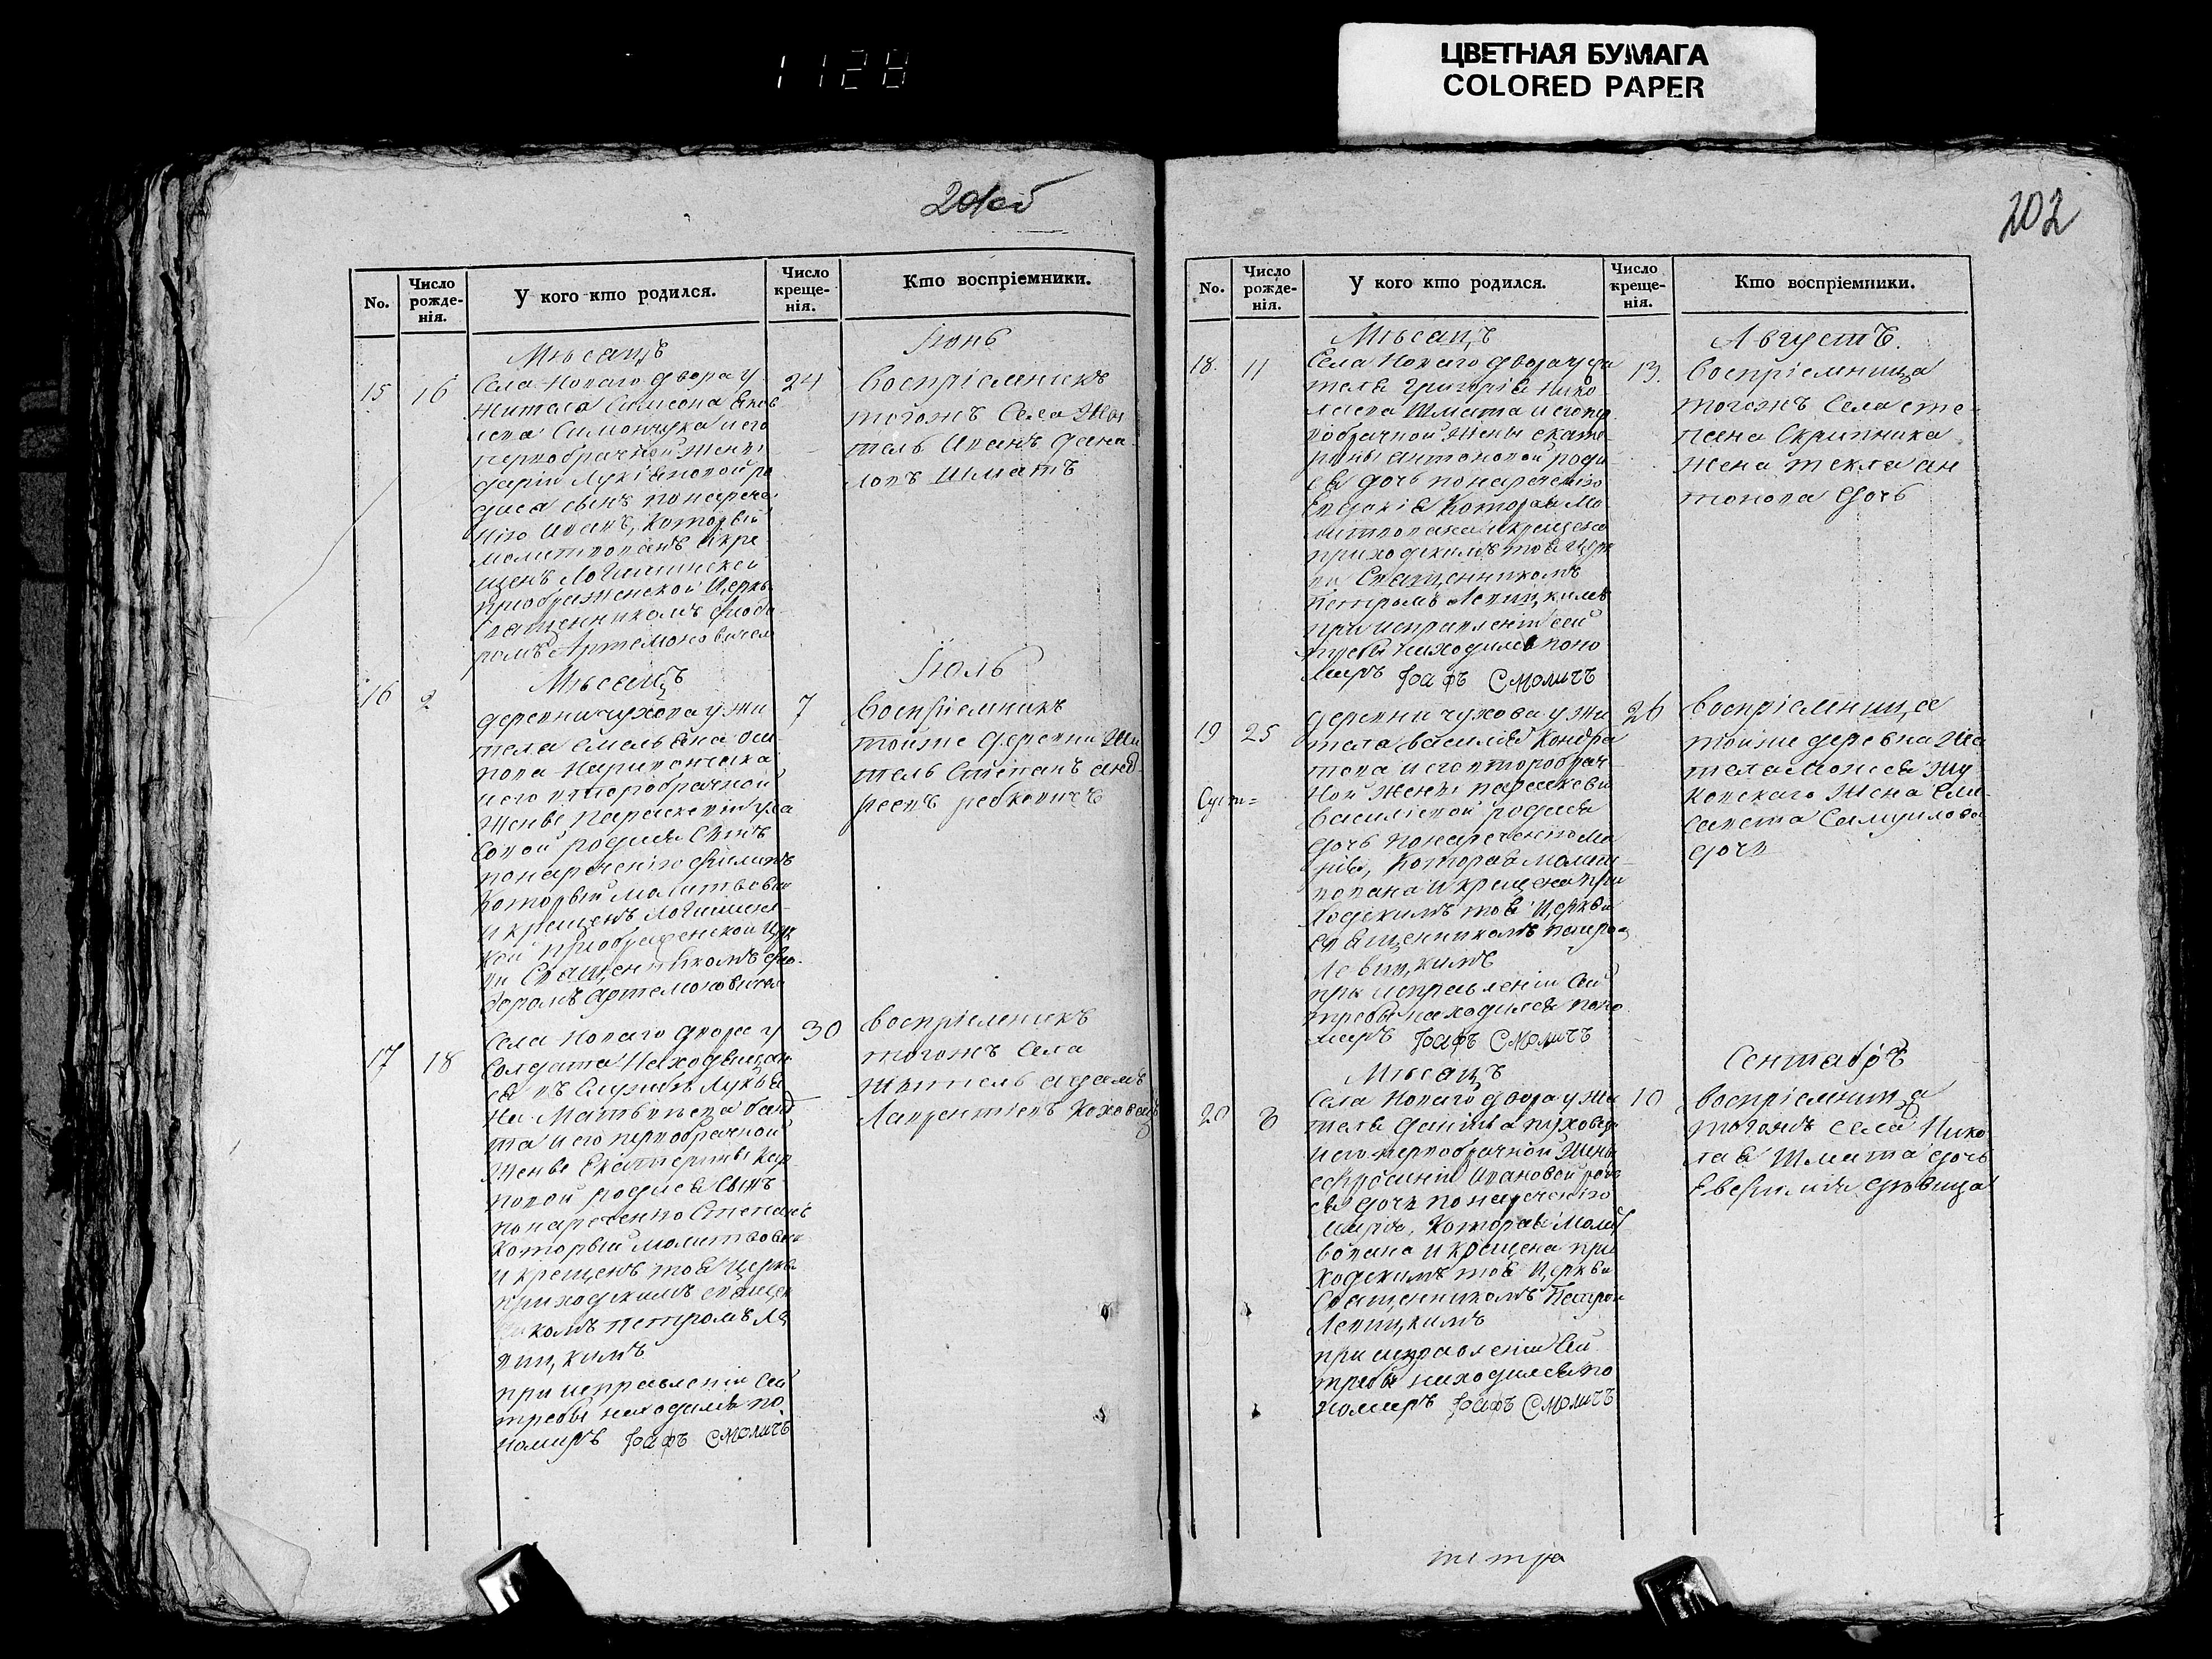 1128
ЦВЕТНАЯ БУМАГА
COLORED PAPER
201об
202
No.
Число рожде-нія.
У кого кто родился.
Число креще-нія.
Кто воспріемники.
Мѣсацъ
Іюнь
15 16
Села Новаго двора у
жителя Симеона Яков
лева Симончука и его
первобрачной жены
дарiи Лукіановой ро
дися сынъ по нарече
нію Иванъ, который
молитвованъ и кре
щенъ Логишинской
преображенской Церкви
священникомъ Фиодо
ромъ Артемоновичем
24
Воспріемникъ
тогожъ Села жи
тель Иванъ дани
ловъ Шматъ
Мѣсацъ
Іюль
16 2
деревни чухова у жи
теля Емельяна оси
пова
и его второбрачной
жены Параскевiи
совой родися Сынъ
по нареченію Филипъ
который молитвован
и крещенъ Логишинс
кой преображенской Цер
ви Священникомъ Фио
доромъ Артемоновичем
7
Воспріемникъ
тойже деревни жи
тель Стѣпанъ анд
реевъ ребковичъ
17 18
Села Новаго двора у
Солдата Находящаго
ся въ Службѣ Лукья
на Матвѣева
та и его первобрачной
жены Екатерины Кар
повой родися Сынъ
по нареченію Степанъ
который молитвован
и крещенъ тоя Церкви
приходскимъ священ
никомъ петромъ Ле
вицкимъ
при исправленіи Сей
требы находился по
номаръ Іоафъ Смоличъ
30
воспріемникъ
тогожъ Села
житель адамъ
Лаврентіевъ
No.
Число рожде-нія.
У кого кто родился.
Число креще-нія.
Кто воспріемники.
Мѣсацъ
Августъ.
18. 11
Села Новаго двора у жи
теля Григорія Нико
лаева Шмата и его пер
вобрачной жены екате
рины антоновой роди
ся дочь по нареченію
Евдокія которая мо
литвована и крещена
приходскимъ тоя Церк
ви Священникомъ
Петромъ Левицкимъ
при исправленіи сей
требы находился поно
маръ Іоафъ Смоличъ
13.
Воспріемница
тогожъ Села сте
пана Скрипника
жена текла ан
тонова дочь
19 25
деревни чухова у жи
теля василія Кондра
това и его второбрач
ной жены параскевiи
василіевой родися
дочь по нареченію Ма
рія, которая молит
вована и крещена при
ходскимъ тоя Церкви
священникомъ Петром
Левицкимъ
при исправленіи Сей
требы находился поно
маръ Іоафъ Смоличъ
26
воспріемница
тойже деревни жи
теля Моисея жу
ковскаго жена Ели
савета Самуилова
дочь
Мѣсацъ
Сентябръ
20 8
Села Новаго двора у жи
теля данiила
и его первобрачной жены
ефросинiи Ивановой роди
ся дочь по нареченію
марія, которая молит
вована и крещена при
ходскимъ тоя Церкви
Священникомъ Петром
Левицкимъ
при исправленіи Сей
требы находился по
номаръ Іоафъ Смоличъ
10
воспріемница
тогожъ села Нико
лая Шмата дочь
дѣвица